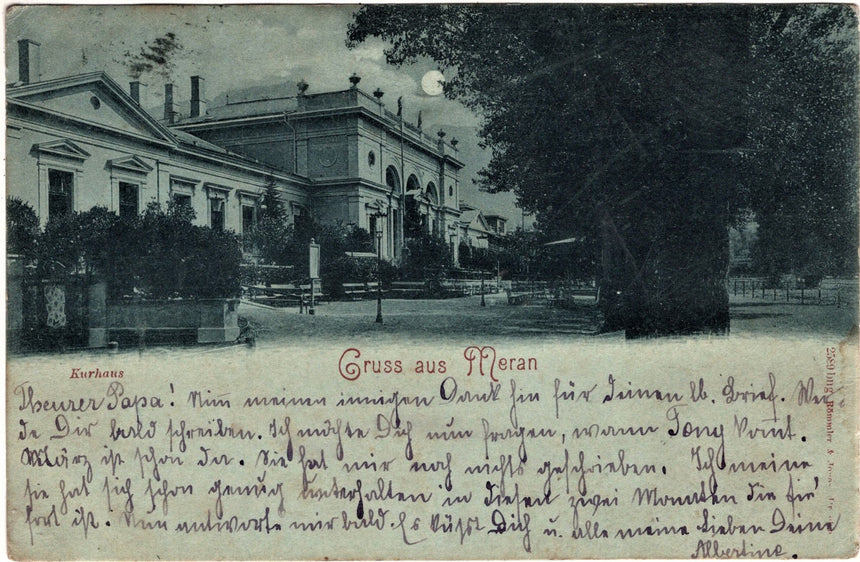 Kurhaus
Gruss aus Meran
Theurer Papa! Nim meinen innigen Dank hin für Deinen lb. Brief. Wer-
de Dir bald schreiben. Ich möchte Dich nun fragen, wann Tony kommt.
März ist schon da. Sie hat mir noch nichts geschrieben. Ich meine
sie hat sich schon genug unterhalten in diesen zwei Monaten die sie
fort ist. Nun antworte mir bald. Es küsst Dich u. alle meine Lieben Deine
Albertine.
2589 Römmler &